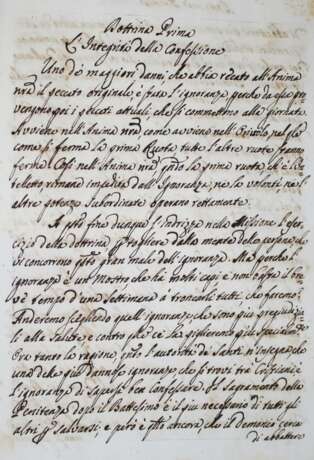 Dottrina Prima
L'Integrità della Confessione
Uno de maggiori danni, che abbia recato all'Anima
nrā il peccato originale è stato l'ignoranza, perche da essa pro-
vengono poi i peccati attuali, che si commettono alla giornata.
Avviene nell'Anima nrā, come avviene nell'Oriuolo, nel qle
come si ferma la prima Ruota, tutte l'altre ruote stanno
ferme. Così nell'Anima nrā, qdo la prima ruota, ch'è l'in-
telletto rimane impedito dall'Ignoranza, ne la volontà, ne l'
altre potenze subordinate operano rettamente.
A qsto fine dunque s'indrizza nelle Missioni l'eser-
cizio della dottrina p togliere dalla mente delle persone, che
vi concorrono qsto gran male dell'ignoranza. Ma perche l'i-
gnoranza è un Mostro, che ha molti capi, e non essendovi
tempo d'una settimana a troncarli tutti, che faremo?
Anderemo scegliendo quell'ignoranze che sono più pregiudizia-
li alla salute, e contro
Ora tanto la ragione, qto l'autorità de Santi n'insegna, che
una delle più dannose ignoranze, che si trovi tra Cristiani è
l'ignoranza di sapersi ben Confessare. Il Sagramento della
Penitenza dopo il Battesimo è il più necessario di tutti gli
altri p salvarsi, e però è qsto ancora, che il demonio cerca
di abbattere